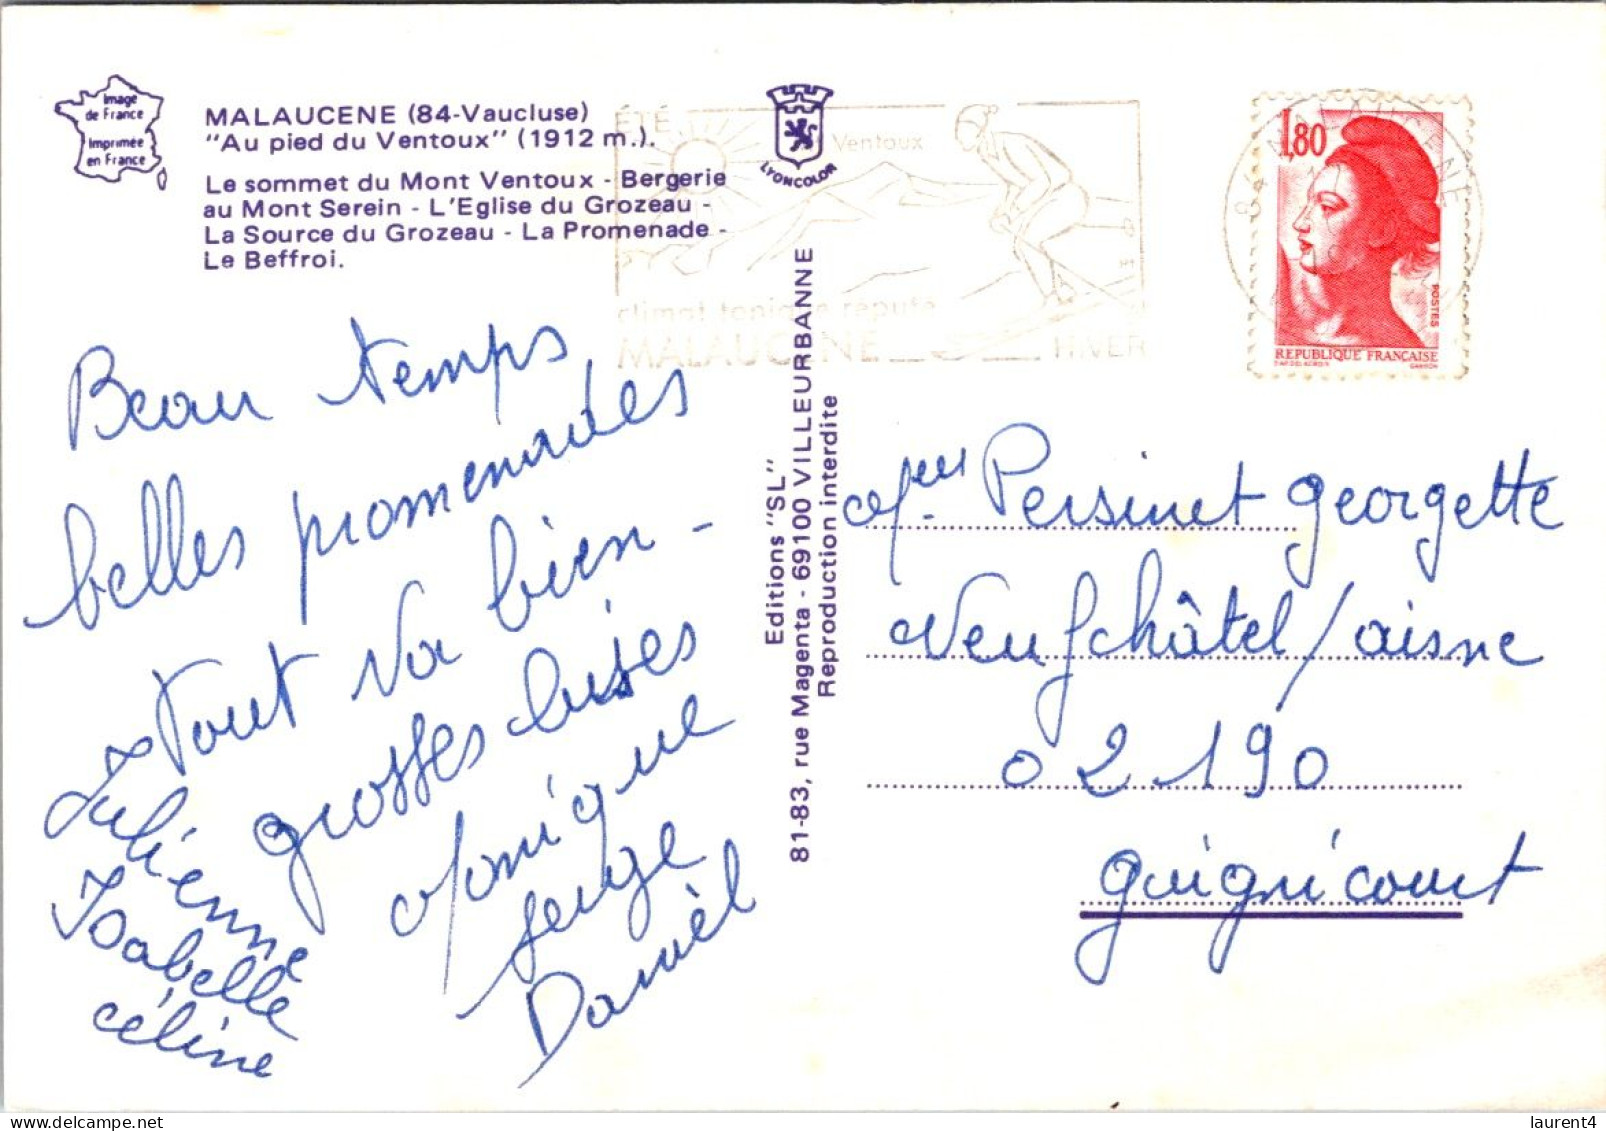 Image
de France
Imprimée
en France
MALAUCENE (84-Vaucluse)
"Au pied du Ventoux" (1912 m.).
Le sommet du Mont Ventoux - Bergerie
au Mont Serein - L'Eglise du Grozeau -
La Source du Grozeau - La Promenade -
Le Beffroi.
LYONCOLOR
ÉTÉ
Ventoux
climat tonique réputé
MALAUCENE
HIVER
84 MALAUCENE
1,80
POSTES
REPUBLIQUE FRANÇAISE
GANDON
Editions "SL"
81-83, rue Magenta - 69100 VILLEURBANNE
Reproduction interdite
Beau temps
belles promenades
Tout va bien -
grosses bises
Monique
Serge
Danièl
Julienne
Isabelle
Céline
Persinet Georgette
Neufchâtel/aisne
02190
Guignicourt
laurent4